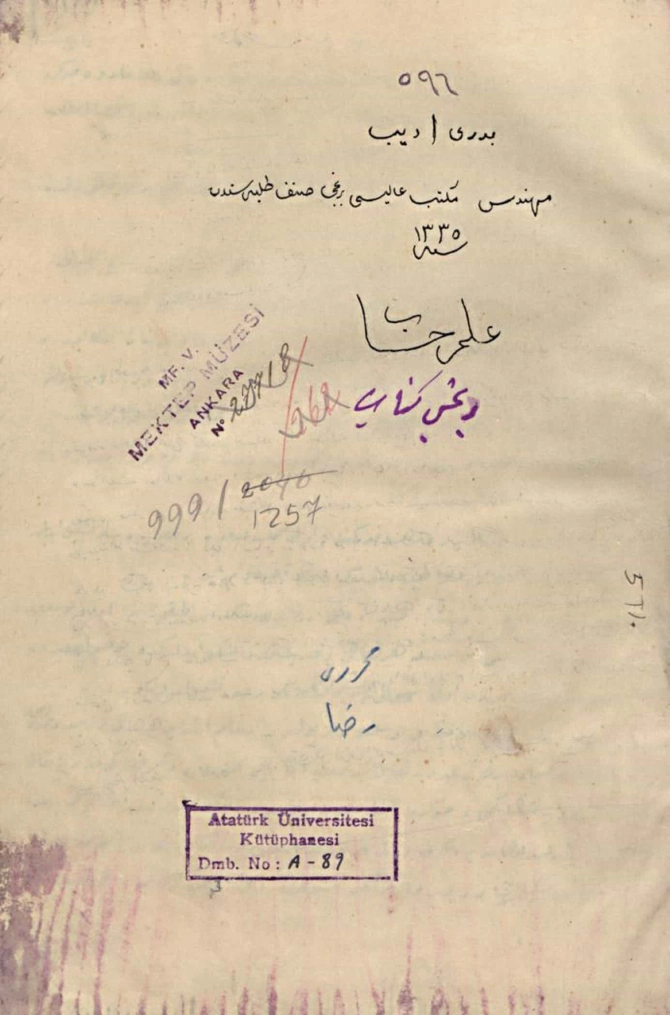 ٥٩٦
بدری ادیب
مهندس مكتب عالیسی برنجی صنف طلبه‌سندن
سنه ١٣٣٥
علم حساب
MF. V.
MEKTEP MÜZESİ
ANKARA
No
كتابی
999 / 2046
1257
محرری
رضا
Atatürk Üniversitesi
Kütüphanesi
Dmb. No: A - 89